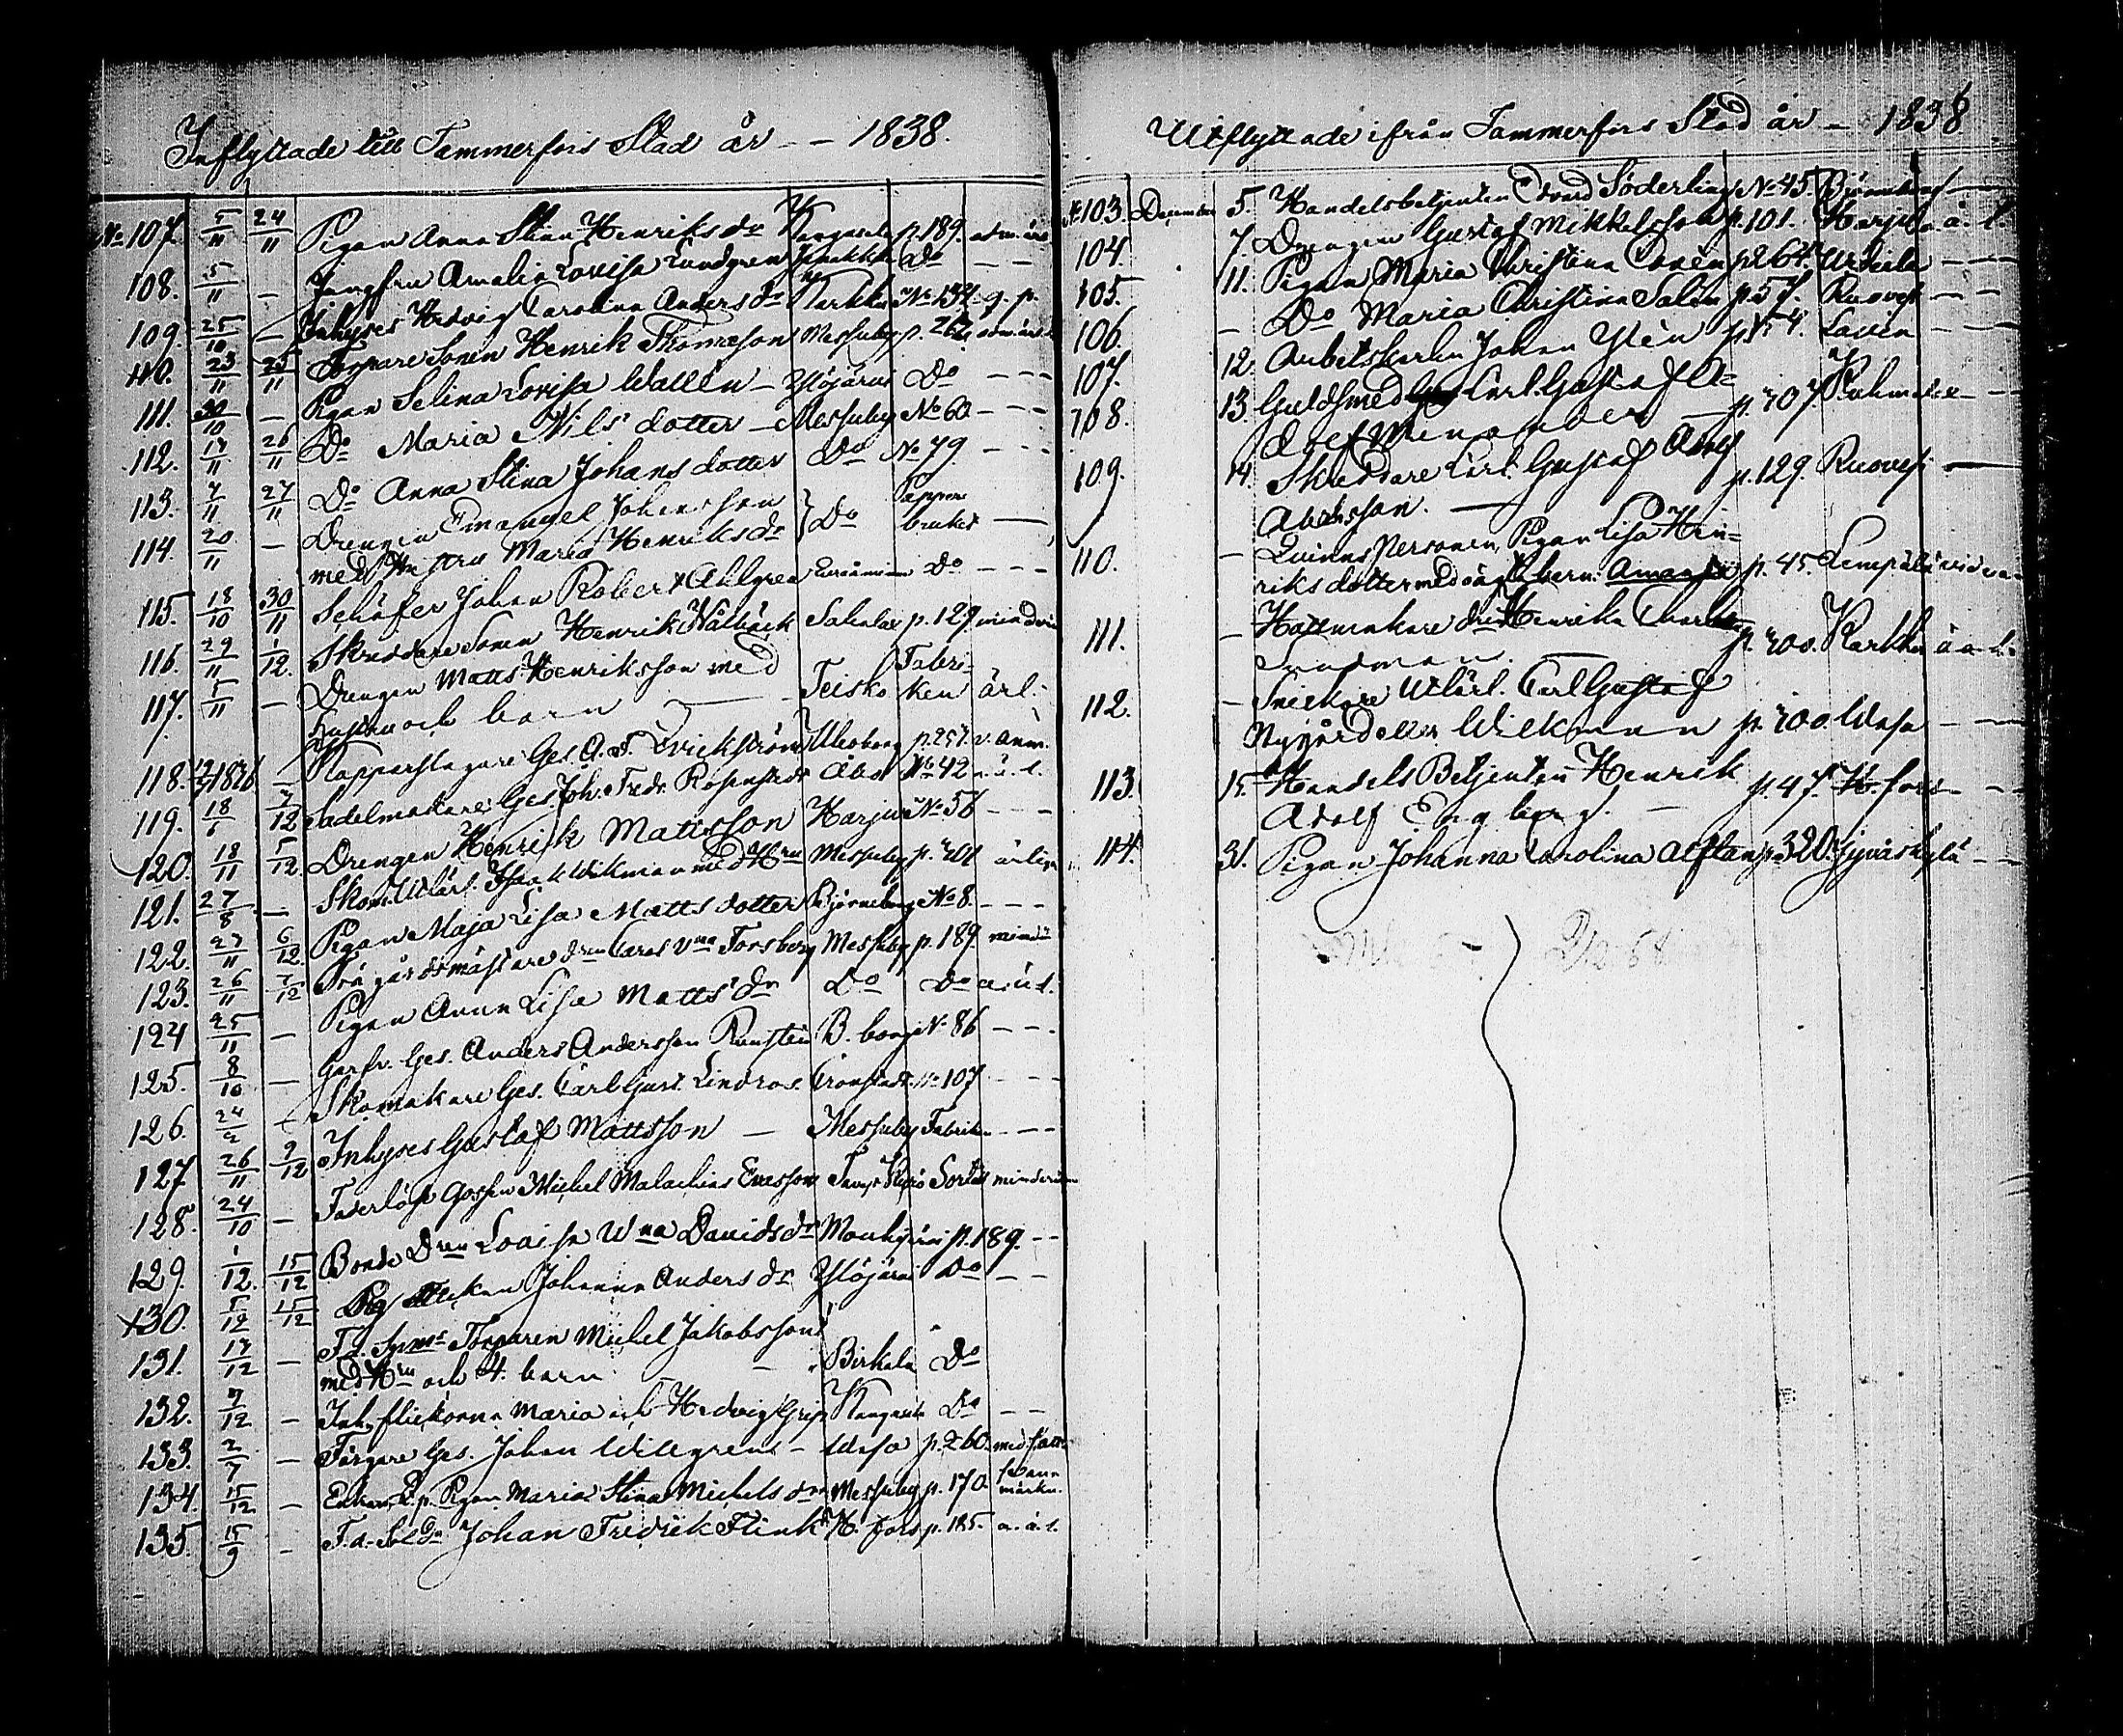 Inflyttade till Tammerfors Stad år - - 1838.
No 107. 5/11 24/11 Pigan Anna Stina Henriks dr Kangasala p. 189. adm. års
108. 5/11 - Jungfru Amalia Lovisa Lundgren Janakkala Do - -
109. 25/10 - Inhyses Hedvig Carolina Anders dr Karkku No 132. g. p.
110. 23/11 25/11 Torpare Sonen Henrik Thomasson Messuby p. 262
111. 30/10 - Pigan Selina Lovisa Wallén - Ylöjärvi Do - - -
112. 17/11 26/11 Do Maria Nils dotter - Messuby No 60 - - -
113. 7/11 27/11 Do Anna Stina Johans dotter Do No 79 - - -
114. 20/11 - Drengen Emanuel Johansson } Do Pappers
med Hustru Maria Henriks dr bruket -
115. 18/10 30/11 Schäfer Johan Robert Ahlgren Do - - -
116. 29/11 1/12. Skräddare Sonen Henrik Wålbäck Sahalax p. 129. mindrår
117. 5/11 - Drengen Matts Henriksson med Fabri-
hustru och barn - Teisko ken ärl.
118. 1826 - Kopparslagare Ges. A. F. Qvickström Uleåborg p. 257. v. anm.
119. 18/6 7/12 Sadelmakare Ges. Joh. Fredr. Rosenstedt Åbo No 42 a. ä. l.
120. 18/11 5/12 Drengen Henrik Mattsson Harju No 56 - - -
121. 27/8 - Skom. Utlärl. Isaak Wikman med Hru Messuby p. 401 ärlig.
122. 27/11 6/12. Pigan Maja Lisa Matts dotter Björneborg No 8. - - -
123. 26/11 7/12 Trägårdsmästare dren Carol. Vna Forsberg Messuby p. 189. mindr
124 25/11 - Pigan Anna Lisa Matts dr Do Do a. ä. l.
125. 8/10 - Garfv. Ges. Anders Andersson Runstén B. borg No 86 - - -
126. 24/2 - Skomakare Ges. Carl Gust. Lindros Cronstadt No 107 - - -
127 26/11 9/12 Inhyses Gustaf Mattsson - Messuby Fabriken - - -
128. 24/10 - Faderlöse Gossen Michel Malachias Ericsson Tavast Kyrö minderårn
129. 1/12. 15/12 Bonde Dren Lovisa Wna Davids dr Mouhijärvi p. 189. - -
130. 5/12 15/12 Flickan Johanna Anders dr Ylöjärvi Do - -
131. 17/12 - F. d. Torparen Michel Jakobsson
med Hru och 4. barn - Birkala Do
132. 7/12 - Inh. flickorna Maria och Hedvig Grip Kangasala Do - -
133. 2/7 - Färgare Ges. Johan Willgren - Wasa p. 260. med fatt
134. 15/12 - Enkan Pigan Maria Stina Michels dr Messuby p. 170.
135. 15/9 - F. d. Sold. Johan Fredrik Flink H. fors p. 185. a. ä. l.
Utflyttade ifrån Tammerfors Stad år - 1838
No 103. December 5. Handelsbetjenten Edvard Söderling No 45 Björneborg -
104. 7. Drengen Gustaf Mikkelsson p. 101. Harju a. ä. l.
105. 11. Pigan Maria Christina Corén p. 264 Urdiala - -
106. - Do Maria Christina Salin p. 57. Ruovesi - -
107. 12. Arbetskarlen Johan Ylén Lavia - -
108. 13. Guldsmed Ges. Carl Gustaf A-
dolf Menander - p. 707. Kuhmalax - -
109. 14. Skräddare Carl Gustaf Adolf
Abrahsson. - p. 129. Ruovesi -
110. - Quinns Personen, Pigan Lisa Hen-
riks dotter med oägta barn: Amanda p. 45. Lempälä
111. - Hattmakare dren Henrika Charlotta
Sandman - p. 700. Karkku a. ä. l.
112. - Snickare Utlärl. Carl Gustaf
Nygård eller Wilkman p. 700. Wasa - -
113. 15. Handels Betjenten Henrik
Adolf Engberg. - p. 47. H. fors - -
114. 31. Pigan Johanna Carolina Alftan p. 320. Jyväskylä - -